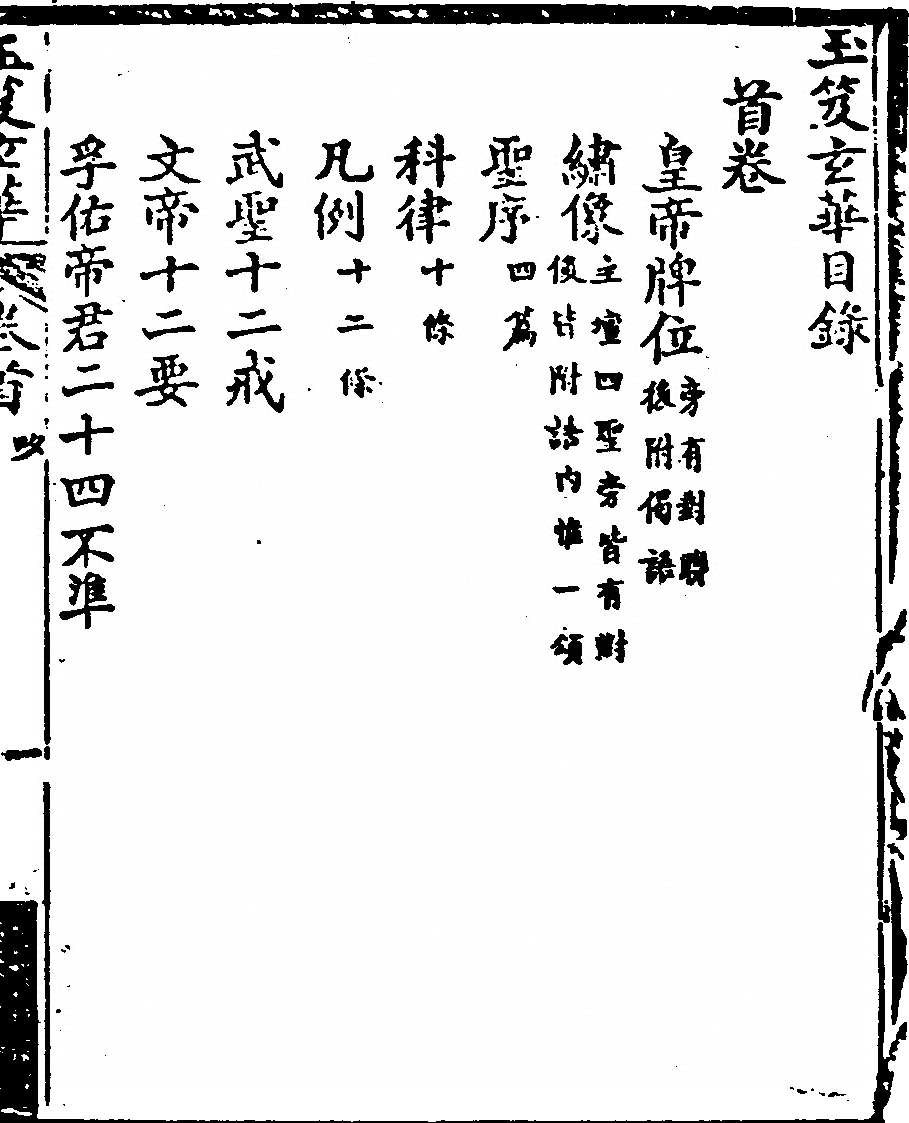 玉笈玄華目錄
首卷
皇帝牌位 旁有對聯 後附偈語
繡像 主壇四聖旁皆有對 後皆附語內惟一頌
聖序 四篇
科律 十條
凡例 十二條
武聖十二戒
文帝十二要
孚佑帝君二十四不準
玉笈玄華 卷首 一